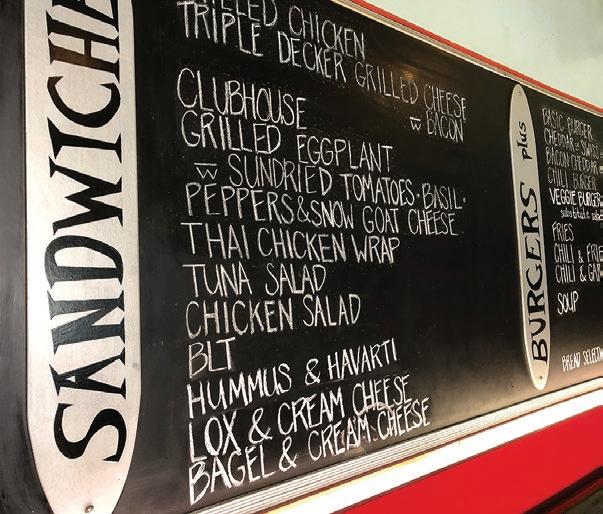 SANDWICHE
GRILLED CHICKEN
TRIPLE DECKER GRILLED CHEESE
w̅ BACON
CLUBHOUSE
GRILLED EGGPLANT
w̅ SUNDRIED TOMATOES·BASIL·
PEPPERS & SNOW GOAT CHEESE
THAI CHICKEN WRAP
TUNA SALAD
CHICKEN SALAD
BLT
HUMMUS & HAVARTI
LOX & CREAM CHEESE
BAGEL & CREAM CHEESE
BURGERS plus
BASIC BURGER
CHEDDAR or SWISS
BACON CHEDDAR
CHILI BURGER
VEGGIE BURGER
substitute
FRIES
CHILI & FRIE
CHILI & GAR
SOUP
BREAD SELECTI